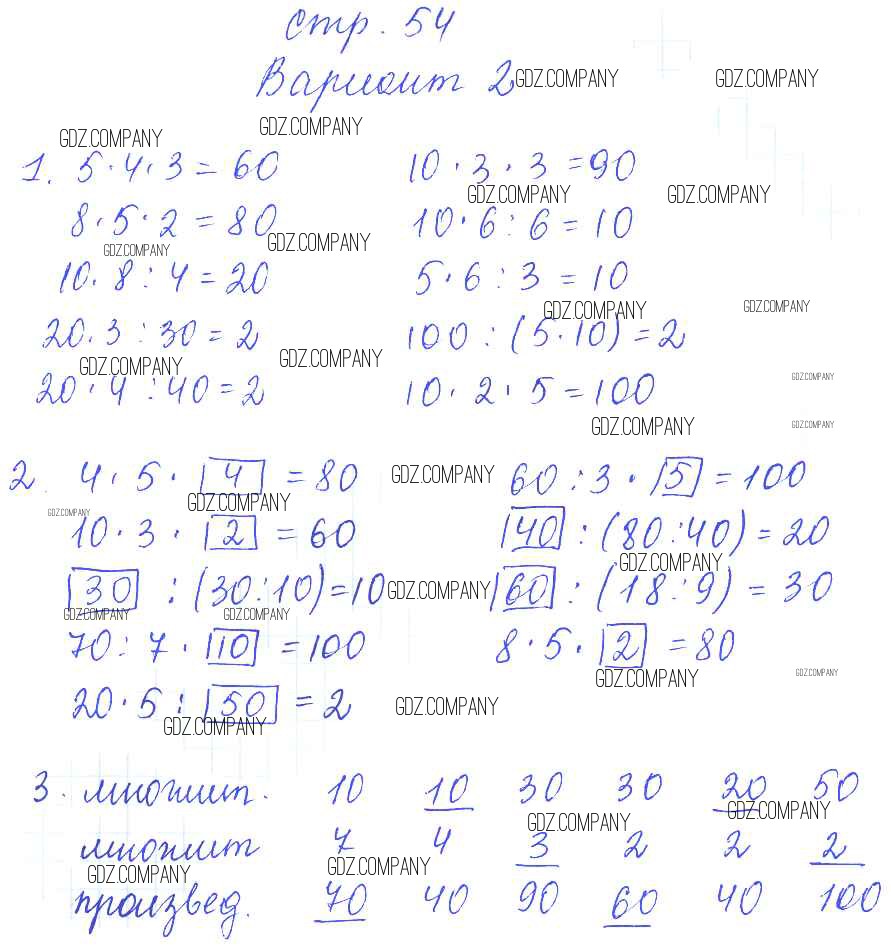 стр. 54
Вариант 2 GDZ.COMPANY GDZ.COMPANY
GDZ.COMPANY GDZ.COMPANY
1. 5·4·3=60 10·3·3=90
GDZ.COMPANY GDZ.COMPANY
8·5·2=80 10·6:6=10
GDZ.COMPANY GDZ.COMPANY
10·8:4=20 5·6:3=10
GDZ.COMPANY GDZ.COMPANY
20·3:30=2 100:(5·10)=2
GDZ.COMPANY GDZ.COMPANY
20·4:40=2 10·2·5=100 GDZ.COMPANY
GDZ.COMPANY GDZ.COMPANY
2. 4·5·4=80 GDZ.COMPANY 60:3·5=100
GDZ.COMPANY GDZ.COMPANY
10·3·2=60 40:(80:40)=20
GDZ.COMPANY
30:(30:10)=10 GDZ.COMPANY 60:(18:9)=30
GDZ.COMPANY GDZ.COMPANY
70:7·10=100 8·5·2=80
GDZ.COMPANY GDZ.COMPANY
20·5:50=2 GDZ.COMPANY
GDZ.COMPANY
3. множит. 10 10 30 30 20 50
GDZ.COMPANY GDZ.COMPANY
множит 7 4 3 2 2 2
GDZ.COMPANY GDZ.COMPANY
произвед. 70 40 90 60 40 100